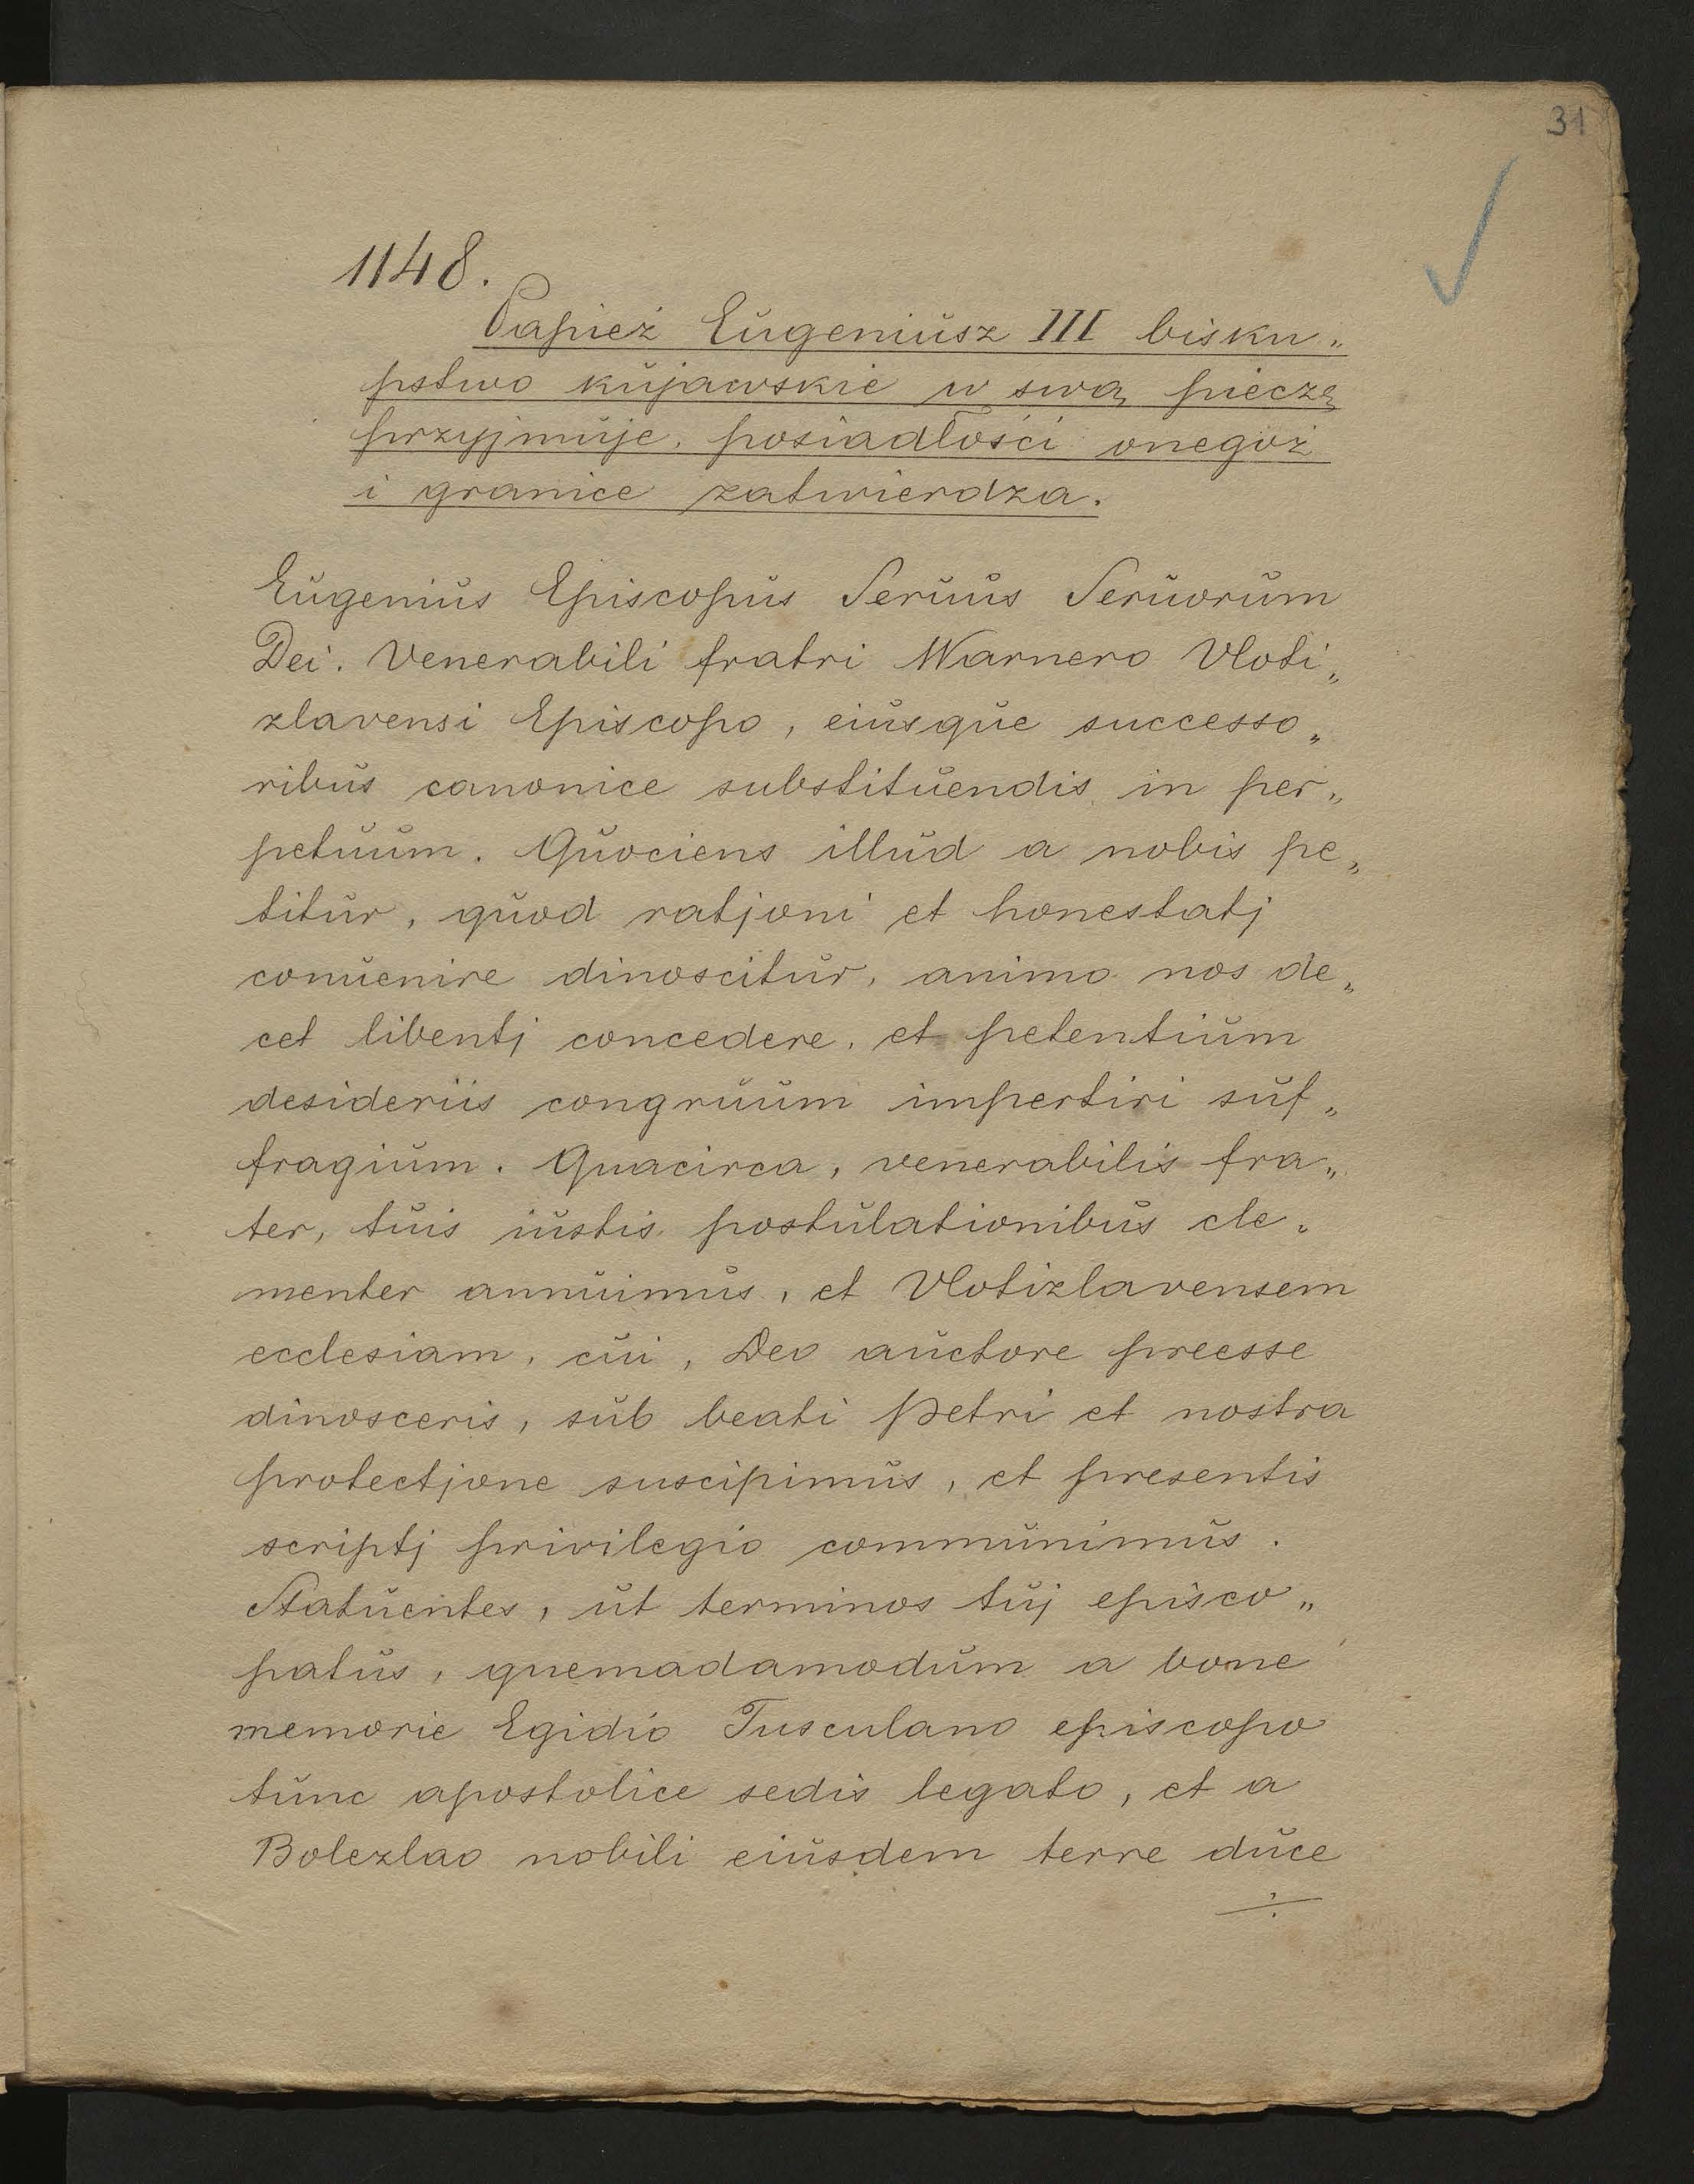 31
1148.
Papież Eugeniusz III bisku„
pstwo kujawskie w swą pieczę
przyjmuje, posiadłości onegoż
i granice zatwierdza.
Eugenius Episcopus Seruus Seruorum
Dei. Venerabili fratri Warnero Vloti„
zlavensi Episcopo, eiusque successo„
ribus canonice substituendis in per„
petuum. Quociens illud a nobis pe„
titur, quod ratjoni et honestatj
conuenire dinoscitur, animo nos de„
cet libentj concedere, et petentium
desideriis congruum impertiri suf„
fragium. Quacirca, venerabilis fra„
ter, tuis iustis postulationibus cle„
menter annuimus, et Vlotizlavensem
ecclesiam, cui, Deo auctore preesse
dinosceris, sub beati Petri et nostra
protectjone suscipimus, et presentis
scriptj privilegio communimus.
Statuentes, ut terminos tuj episco„
patus, quemadamodum a bone
memorie Egidio Tusculano episcopo
tunc apostolice sedis legato, et a
Bolezlao nobili eiusdem terre duce
÷